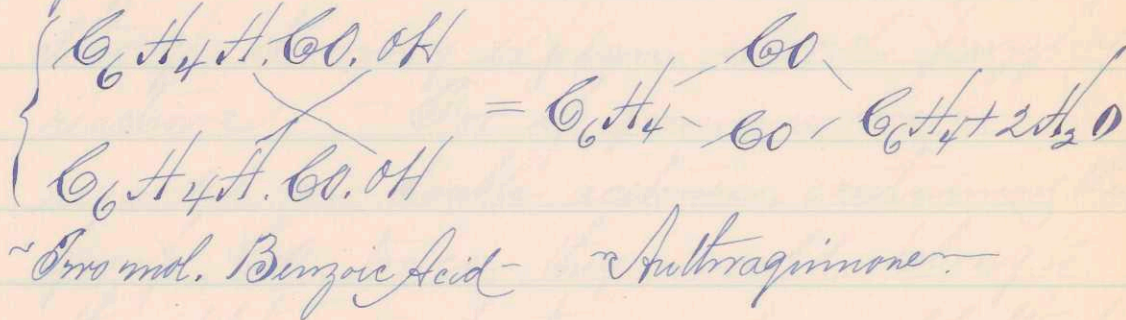 C6H4H.CO.OH CO
= C6H4 CO C6H4 + 2H2O
C6H4H.CO.OH
Two mol. Benzoic Acid - Anthraquinone